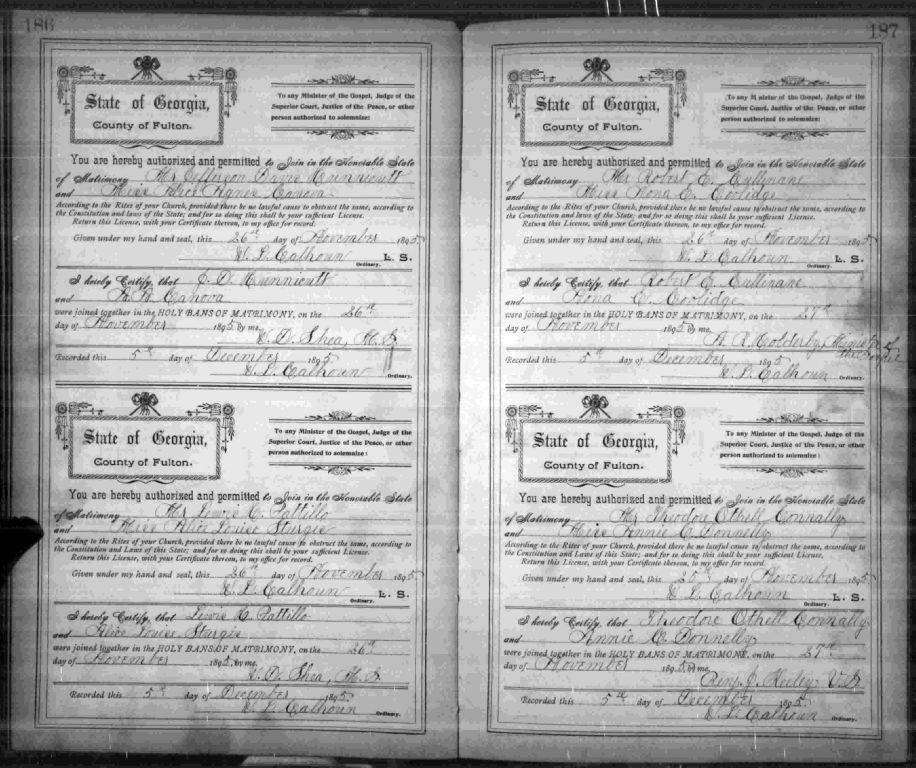 186
State of Georgia,
County of Fulton.
To any Minister of the Gospel, Judge of the
Superior Court, Justice of the Peace, or other
person authorized to solemnize:
You are hereby authorized and permitted to Join in the Honorable State
of Matrimony Mr Jefferson Davis Hunnicutt
and Miss Agnes Canova
According to the Rites of your Church, provided there be no lawful cause to obstruct the same, according to
the Constitution and laws of the State; and for so doing this shall be your sufficient License.
Return this License, with your Certificate hereon, to my office for record.
Given under my hand and seal, this 26th day of November 1895
W. L. Calhoun L. S.
Ordinary.
I hereby Certify, that J. D. Hunnicutt
and A. Canova
were joined together in the HOLY BANS OF MATRIMONY, on the 26th
day of November 1895 by me,
D. Shea,
Recorded this 5th day of December 1895
W. L. Calhoun
Ordinary.
State of Georgia,
County of Fulton.
To any Minister of the Gospel, Judge of the
Superior Court, Justice of the Peace, or other
person authorized to solemnize:
You are hereby authorized and permitted to Join in the Honorable State
of Matrimony Mr Lewis C. Pattillo
and Miss Alice Louise Sturgis
According to the Rites of your Church, provided there be no lawful cause to obstruct the same, according to
the Constitution and Laws of this State; and for so doing this shall be your sufficient License.
Return this License, with your Certificate thereon, to my office for record.
Given under my hand and seal, this 26th day of November 1895
W. L. Calhoun L. S.
Ordinary.
I hereby Certify, that Lewis C. Pattillo
and Alice Louise Sturgis
were joined together in the HOLY BANS OF MATRIMONY, on the 26th
day of November 1895, by me,
D. Shea,
Recorded this 5th day of December 1895
W. L. Calhoun
Ordinary.
187
State of Georgia,
County of Fulton.
To any Minister of the Gospel, Judge of the
Superior Court, Justice of the Peace, or other
person authorized to solemnize:
You are hereby authorized and permitted to Join in the Honorable State
of Matrimony Mr Robert E. Cullinane
and Miss Nona E. Coolidge
According to the Rites of your Church, provided there be no lawful cause to obstruct the same, according to
the Constitution and laws of the State; and for so doing this shall be your sufficient License.
Return this License, with your Certificate thereon, to my office for record.
Given under my hand and seal, this 26th day of November 1895
W. L. Calhoun L. S.
Ordinary.
I hereby Certify, that Robert E. Cullinane
and Nona E. Coolidge
were joined together in the HOLY BANS OF MATRIMONY, on the 27th
day of November 1895 by me,
A. R. Holderby, Minister of
the Gospel
Recorded this 5th day of December 1895
W. L. Calhoun
Ordinary.
State of Georgia,
County of Fulton.
To any Minister of the Gospel, Judge of the
Superior Court, Justice of the Peace, or other
person authorized to solemnize:
You are hereby authorized and permitted to Join in the Honorable State
of Matrimony Mr Theodore Othell Connally
and Miss Annie C. Donnelly
According to the Rites of your Church, provided there be no lawful cause to obstruct the same, according to
the Constitution and Laws of this State; and for so doing this shall be your sufficient License.
Return this License, with your Certificate thereon, to my office for record.
Given under my hand and seal, this 25th day of November 1895
W. L. Calhoun L. S.
Ordinary.
I hereby Certify, that Theodore Othell Connally
and Annie C. Donnelly
were joined together in the HOLY BANS OF MATRIMONY, on the 27th
day of November 1895 by me,
Benj. J. Keiley,
Recorded this 5th day of December 1895
W. L. Calhoun
Ordinary.